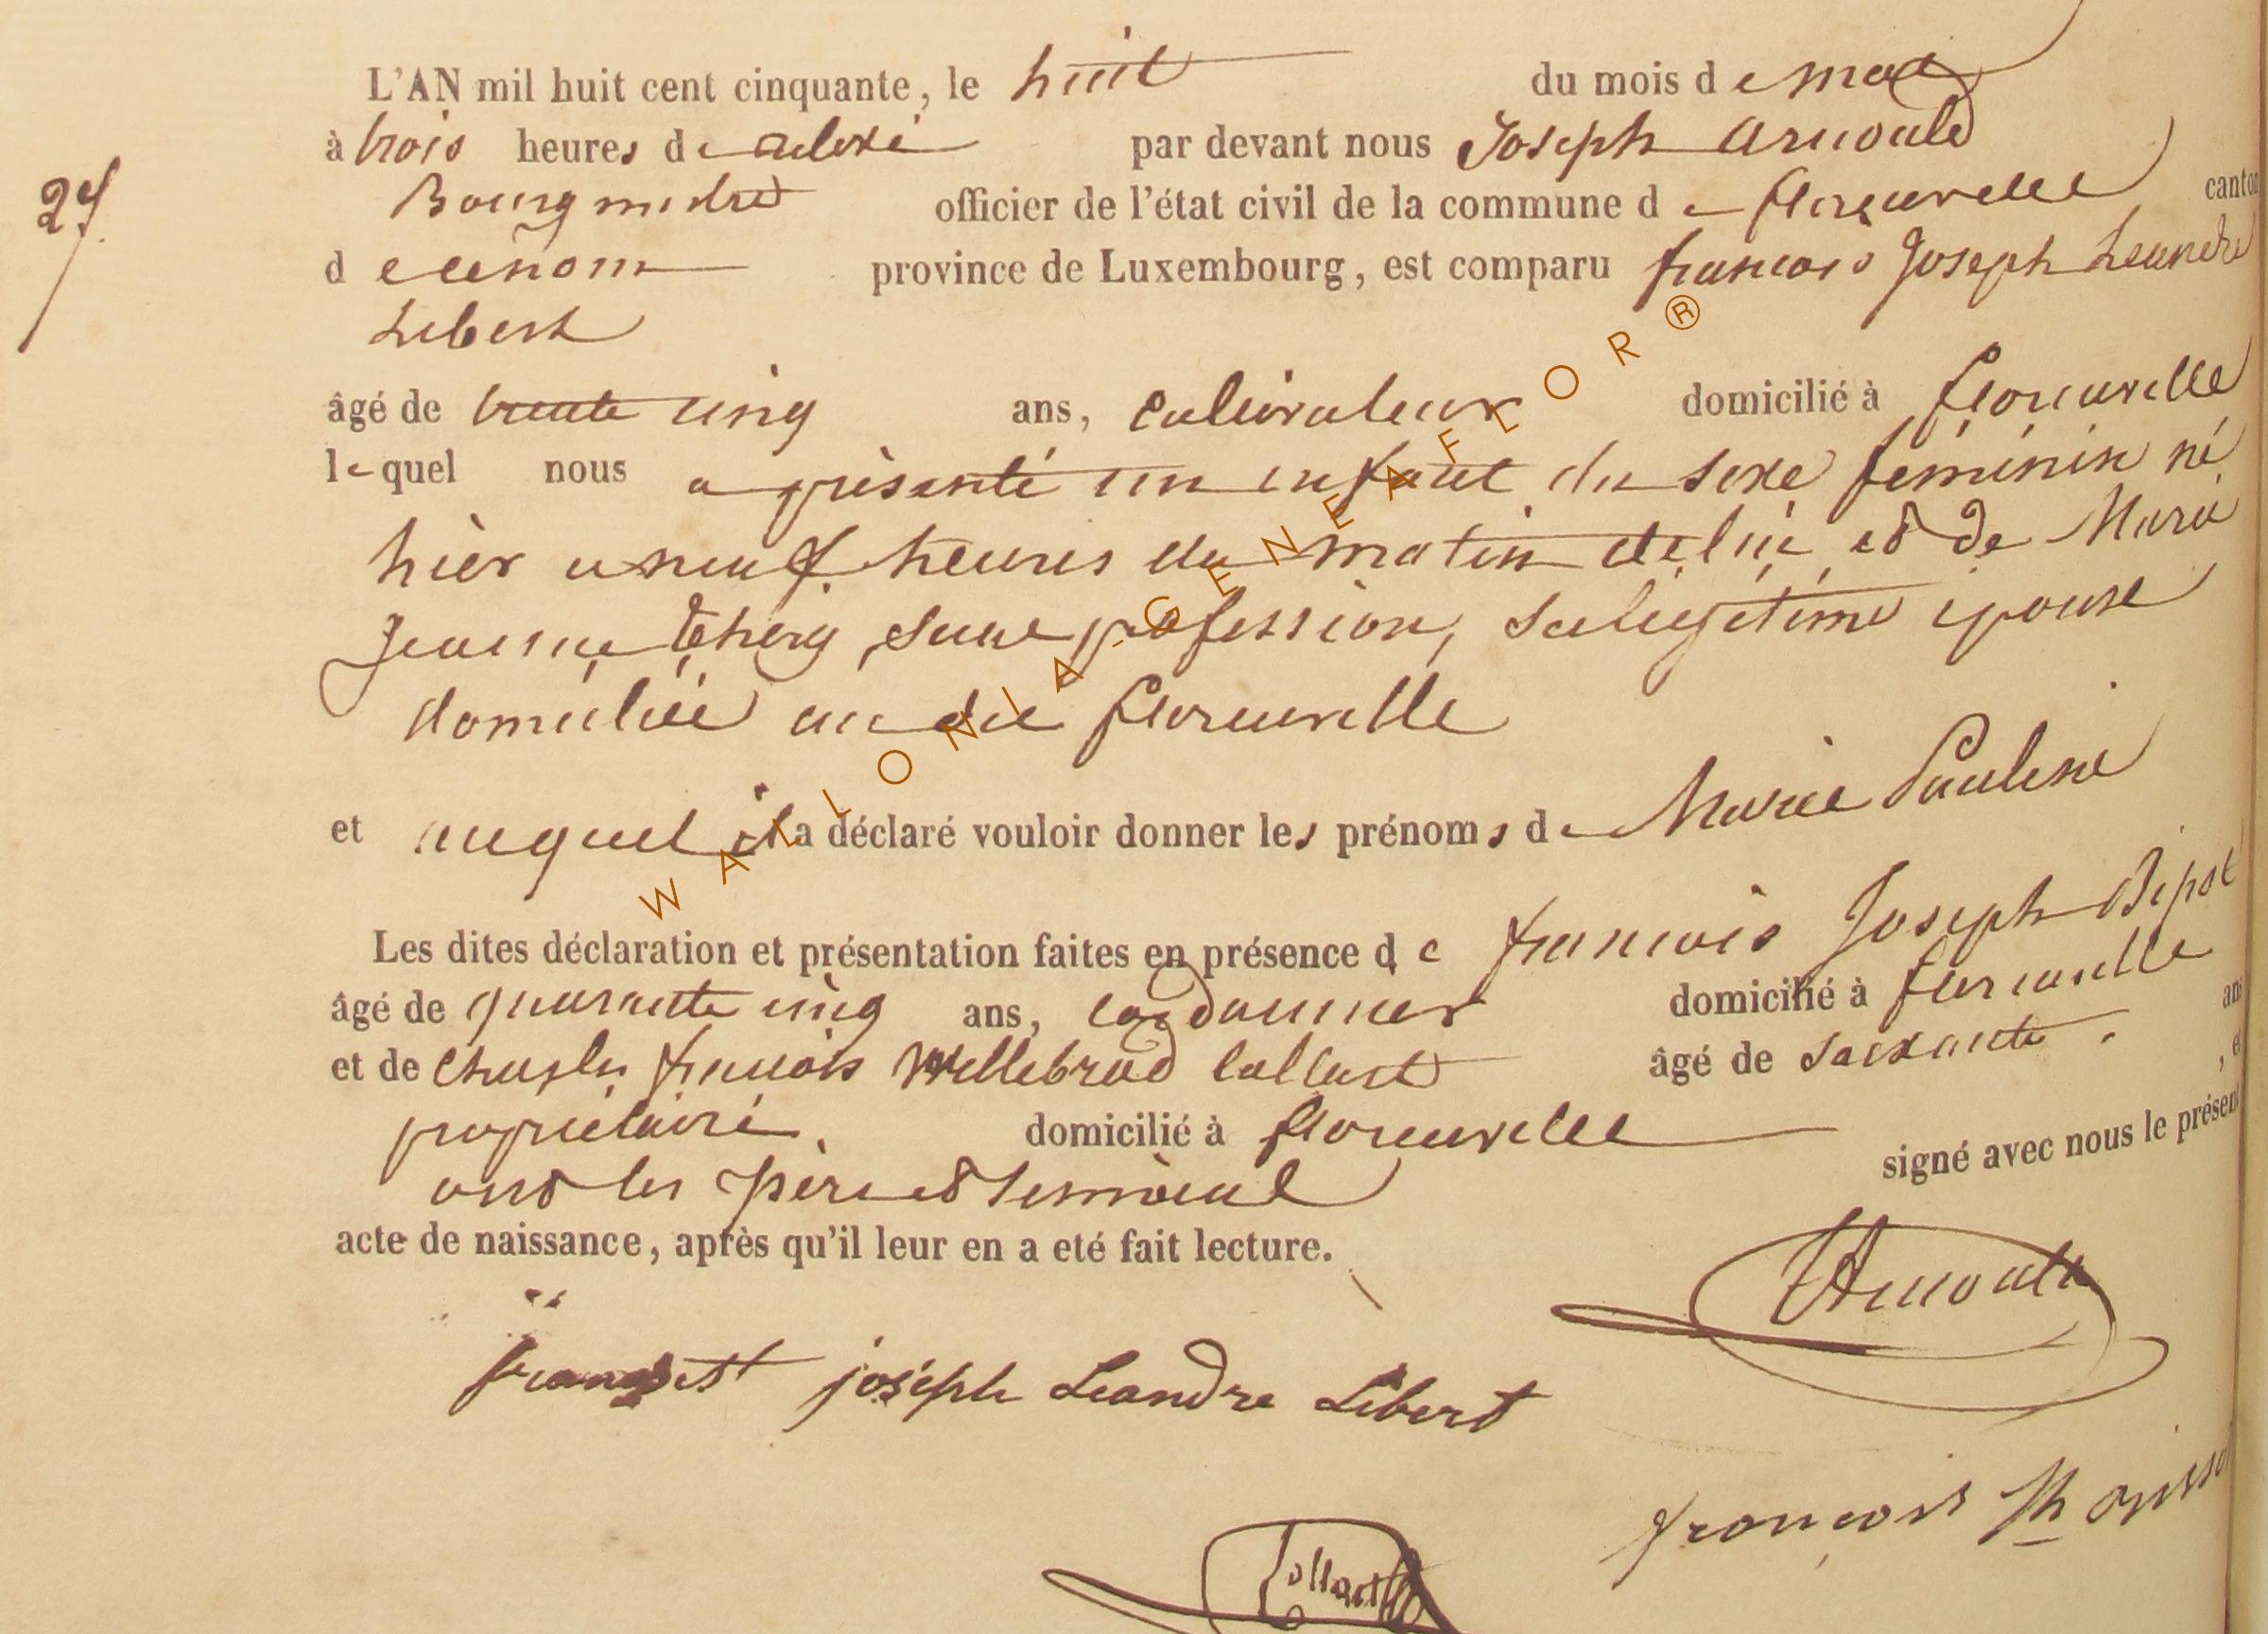 L'AN mil huit cent cinquante, le huit du mois de mai
à trois heures de relevé par devant nous Joseph Arnould
27 Bourgmestre officier de l'état civil de la commune de florenville canton
de province de Luxembourg, est comparu françois Joseph Leandre
Libert
âgé de trente cinq ans, cultivateur domicilié à florenville
lequel nous a présenté un enfant du sexe féminin né
hier a neuf heures du matin de lui et de Marie
Jeanne sans profession, sa légitime épouse
domiciliée au dit florenville
et auquel il a déclaré vouloir donner les prénoms de Marie Pauline
Les dites déclaration et présentation faites en présence de françois Joseph
âgé de quarante cinq ans, cordonnier domicilié à florenville
ans
et de Charles françois Willebrod Collart âgé de soixante
propriétaire, domicilié à florenville
ont les père et témoins signé avec nous le présent
acte de naissance, après qu'il leur en a eté fait lecture.
Arnould
joséph Leandre Libert
françois
Collart
WALLONIA-GENEAFLOR®